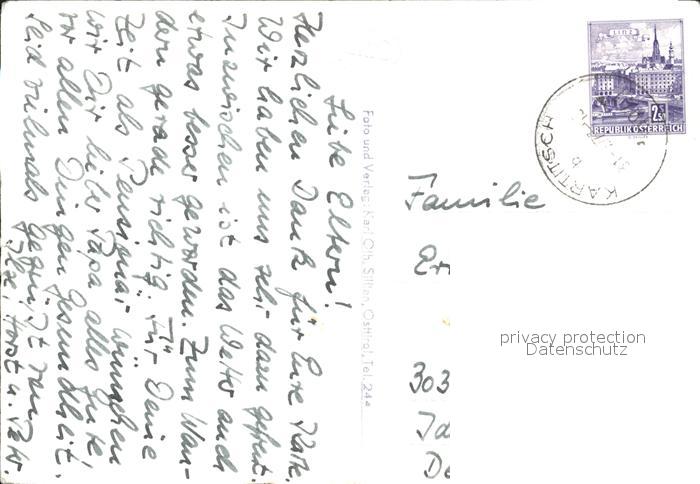 Liebe Eltern!
Herzlichen Dank für Eure Karte.
Wir haben uns sehr darüber gefreut.
Inzwischen ist das Wetter auch
etwas besser geworden. Zum Wan-
dern gerade richtig. Für Deine
Zeit als Pensionär wünschen
wir Dir lieber Papa alles Gute,
vor allen Dingen Gesundheit.
Seid vielmals gegrüßt von
Ilse, Horst u. Petr.
Foto und Verlag: Karl Oth, Sillian, Osttirol, Tel. 244
LINZ
2S
REPUBLIK ÖSTERREICH
KARTITSCH
Familie
Er
303
De
privacy protection
Datenschutz